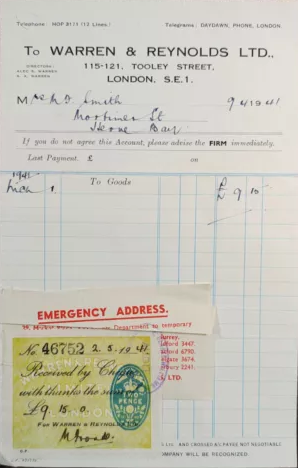 Telephone: HOP 3111 (12 Lines) Telegrams: DAYDAWN, PHONE, LONDON.
To WARREN & REYNOLDS LTD.,
DIRECTORS:
115-121, TOOLEY STREET,
LONDON, S.E.1.
Smith 9 4 1941
Mortimer St
Herne Bay
If you do not agree this Account, please advise the FIRM immediately.
Last Payment. £ on
1941
1. To Goods £9 15
EMERGENCY ADDRESS.
Department to temporary
3447.
6790.
3674.
2241.
LTD.
No. 46752 2. 5. 1941
Received by Cheque
with thanks the sum of
£9. 15.
LONDON
For WARREN & REYNOLDS
TWO
PENCE
LTD. AND CROSSED A/C PAYEE NOT NEGOTIABLE
COMPANY WILL BE RECOGNIZED.